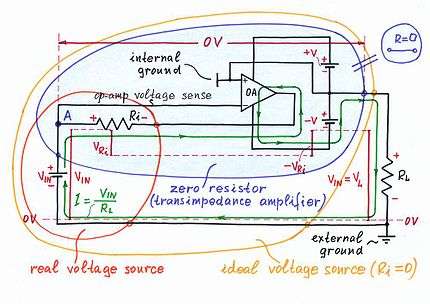 0V
R=0
internal
ground
+V
op-amp voltage sense
OA
A
+ Ri -
-V
+
VRi
-VRi
+
VIN
VIN
zero resistor
(transimpedance amplifier)
VIN=VL
RL
I = VIN/RL
-
0V
0V
external
ground
real voltage source
ideal voltage source (Ri=0)